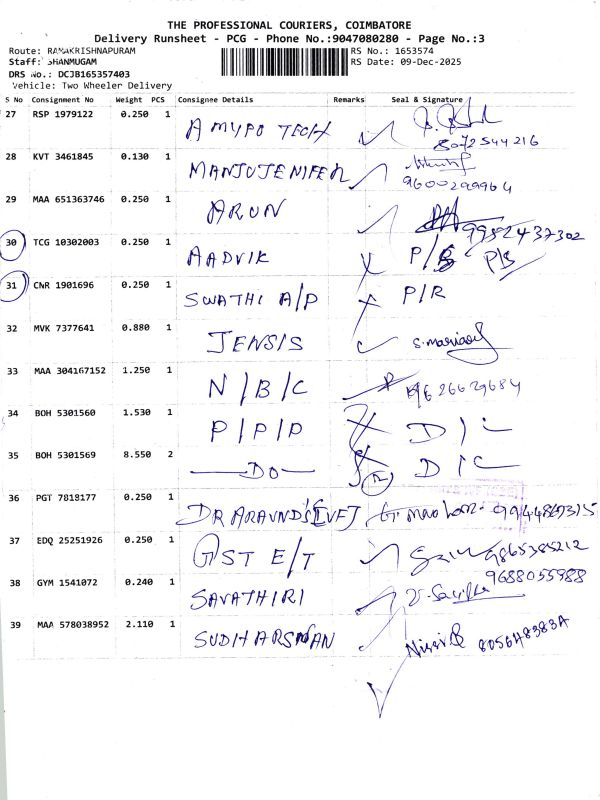 THE PROFESSIONAL COURIERS, COIMBATORE
Delivery Runsheet - PCG - Phone No.:9047080280 - Page No.:3
Route: RAMAKRISHNAPURAM
RS No.: 1653574
Staff: SHANMUGAM
RS Date: 09-Dec-2025
DRS No.: DCJB165357403
Vehicle: Two Wheeler Delivery
S No Consignment No Weight PCS Consignee Details Remarks Seal & Signature
27 RSP 1979122 0.250 1 AMYPO TECH
8072544216
28 KVT 3461845 0.130 1 MANJUJENIFER
9600299964
29 MAA 651363746 0.250 1 ARUN 9952437302
30 TCG 10302003 0.250 1 AADVIK P/S P/S
31 CNR 1901696 0.250 1 SWATHI A/P P/R
32 MVK 7377641 0.880 1 JENSIS S. mariasel
33 MAA 304167152 1.250 1 N/B/C
34 BOH 5301560 1.530 1 P/P/P D/L
35 BOH 5301569 8.550 2 DO D/L
36 PGT 7818177 0.250 1
37 EDQ 25251926 0.250 1 GST E/T 9865385212
9688055988
38 GYM 1541072 0.240 1 SAVATHIRI
39 MAA 578038952 2.110 1 SUDHARSMAN 805648383A